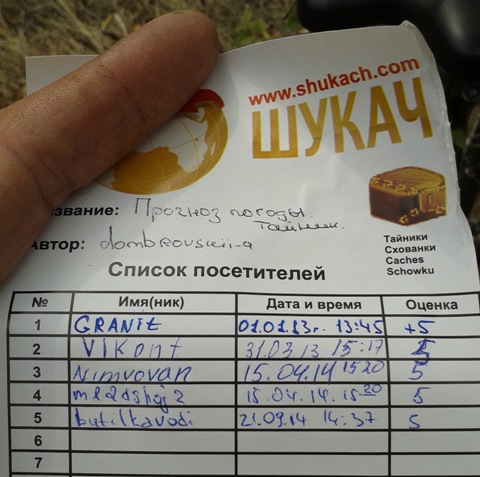 www.shukach.com
ШУКАЧ
Тайники
Схованки
Caches
Schowku
звание: Прогноз погоды.
Тайник.
Автор: dombrovskii-a
Список посетителей
№ Имя(ник) Дата и время Оценка
1 GRANIT 01.01.13г. 13:45 +5
2 VIKont 31.03.13 15:17 5
3 Nimvovan 15.04.14 15 20 5
4 mladshoj2 15.04.14. 15-20 5
5 butilkavodi 21.09.14 14:37 5
6
7